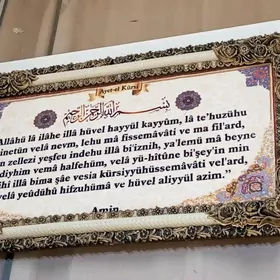 Ayet-el Kürsi
بسم الله الرحمن الرحيم
Allâhü lâ ilâhe illâ hüvel hayyül kayyûm, lâ te'huzühu
sinetün velâ nevm, lehu mâ fissemâvâti ve ma fil'ard,
zellezi yeşfeu indehu illâ bi'iznih, ya'lemü mâ beyne
eydiyhim vemâ halfehüm, velâ yü-hîtûne bi'şey'in min
illâ bima şâe vesia kürsiyyühüssemâvâti vel'ard,
velâ yeûdühû hifzuhümâ ve hüvel aliyyül azim.”
Amin